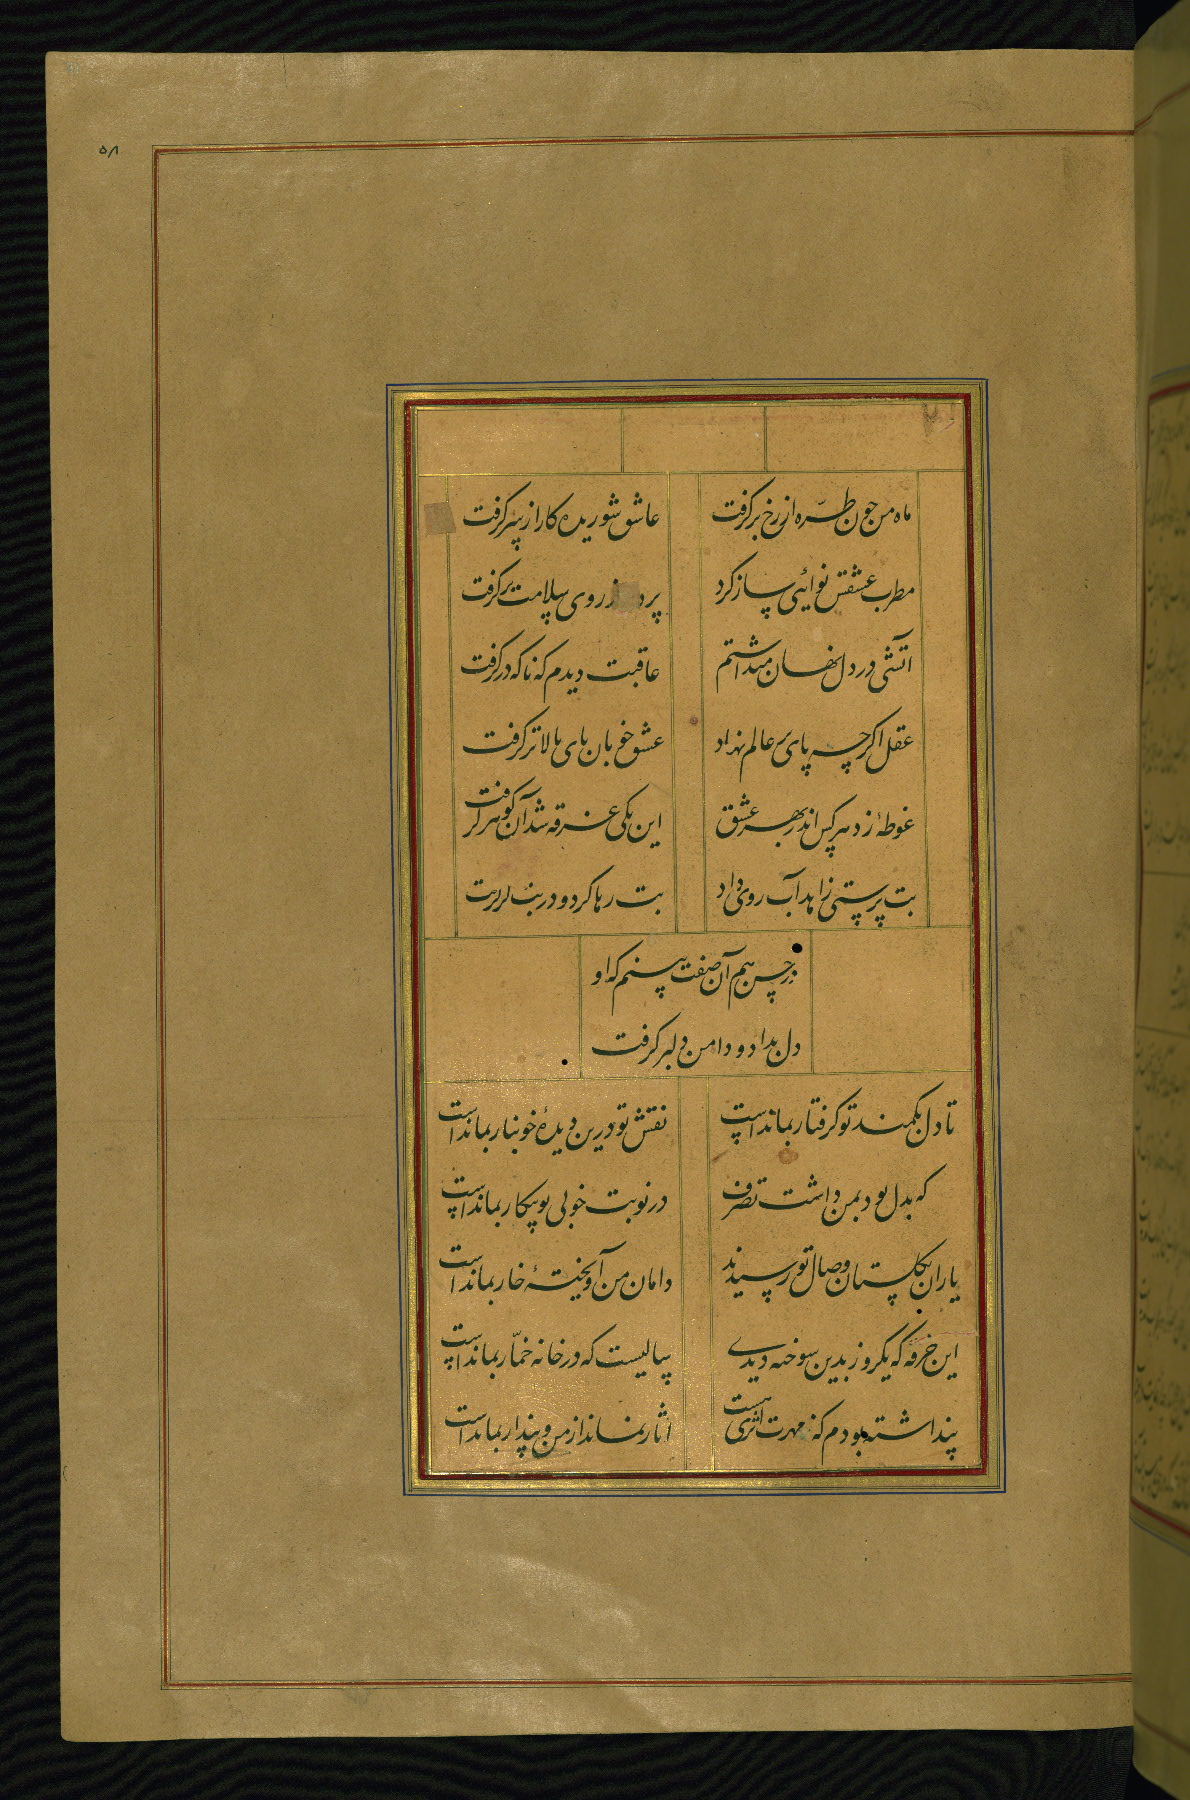 ۵۸
ماه من چون طرّه از رخ برگرفت
عاشق شوریده کار از سر گرفت
مطرب عشقش نوائی ساز کرد
روی سلامت برگرفت
آتشی در دل نهان میداشتم
عاقبت دیدم که ناگه درگرفت
عقل اگرچه پای بر عالم نهاد
عشق خوبان پای بالاتر گرفت
غوطهٔ زد هر کس اندر بهر عشق
این یکی غرقه شد آن گوهر گرفت
بت پرستی زاهد آب روی داد
بت رها کرد و در
در حسن هم آن صفت بینم که او
دل بداد و دامن دلبر گرفت
تا دل بکمند تو گرفتار بماندست
نقش تو درین دیدهٔ خونبار بماندست
که بدل بود بمن داشت تصرف
در نوبت خوبی تو بیکار بماندست
یاران بگلستان وصال تو رسیدند
دامان من آویختهٔ خار بماندست
این خرقه که یکروز بدین سوخته دیدی
سالیست که در خانه خمّار بماندست
پنداشته بودم که ز مهرت اثری هست
آثار نماند از من و پندار بماندست